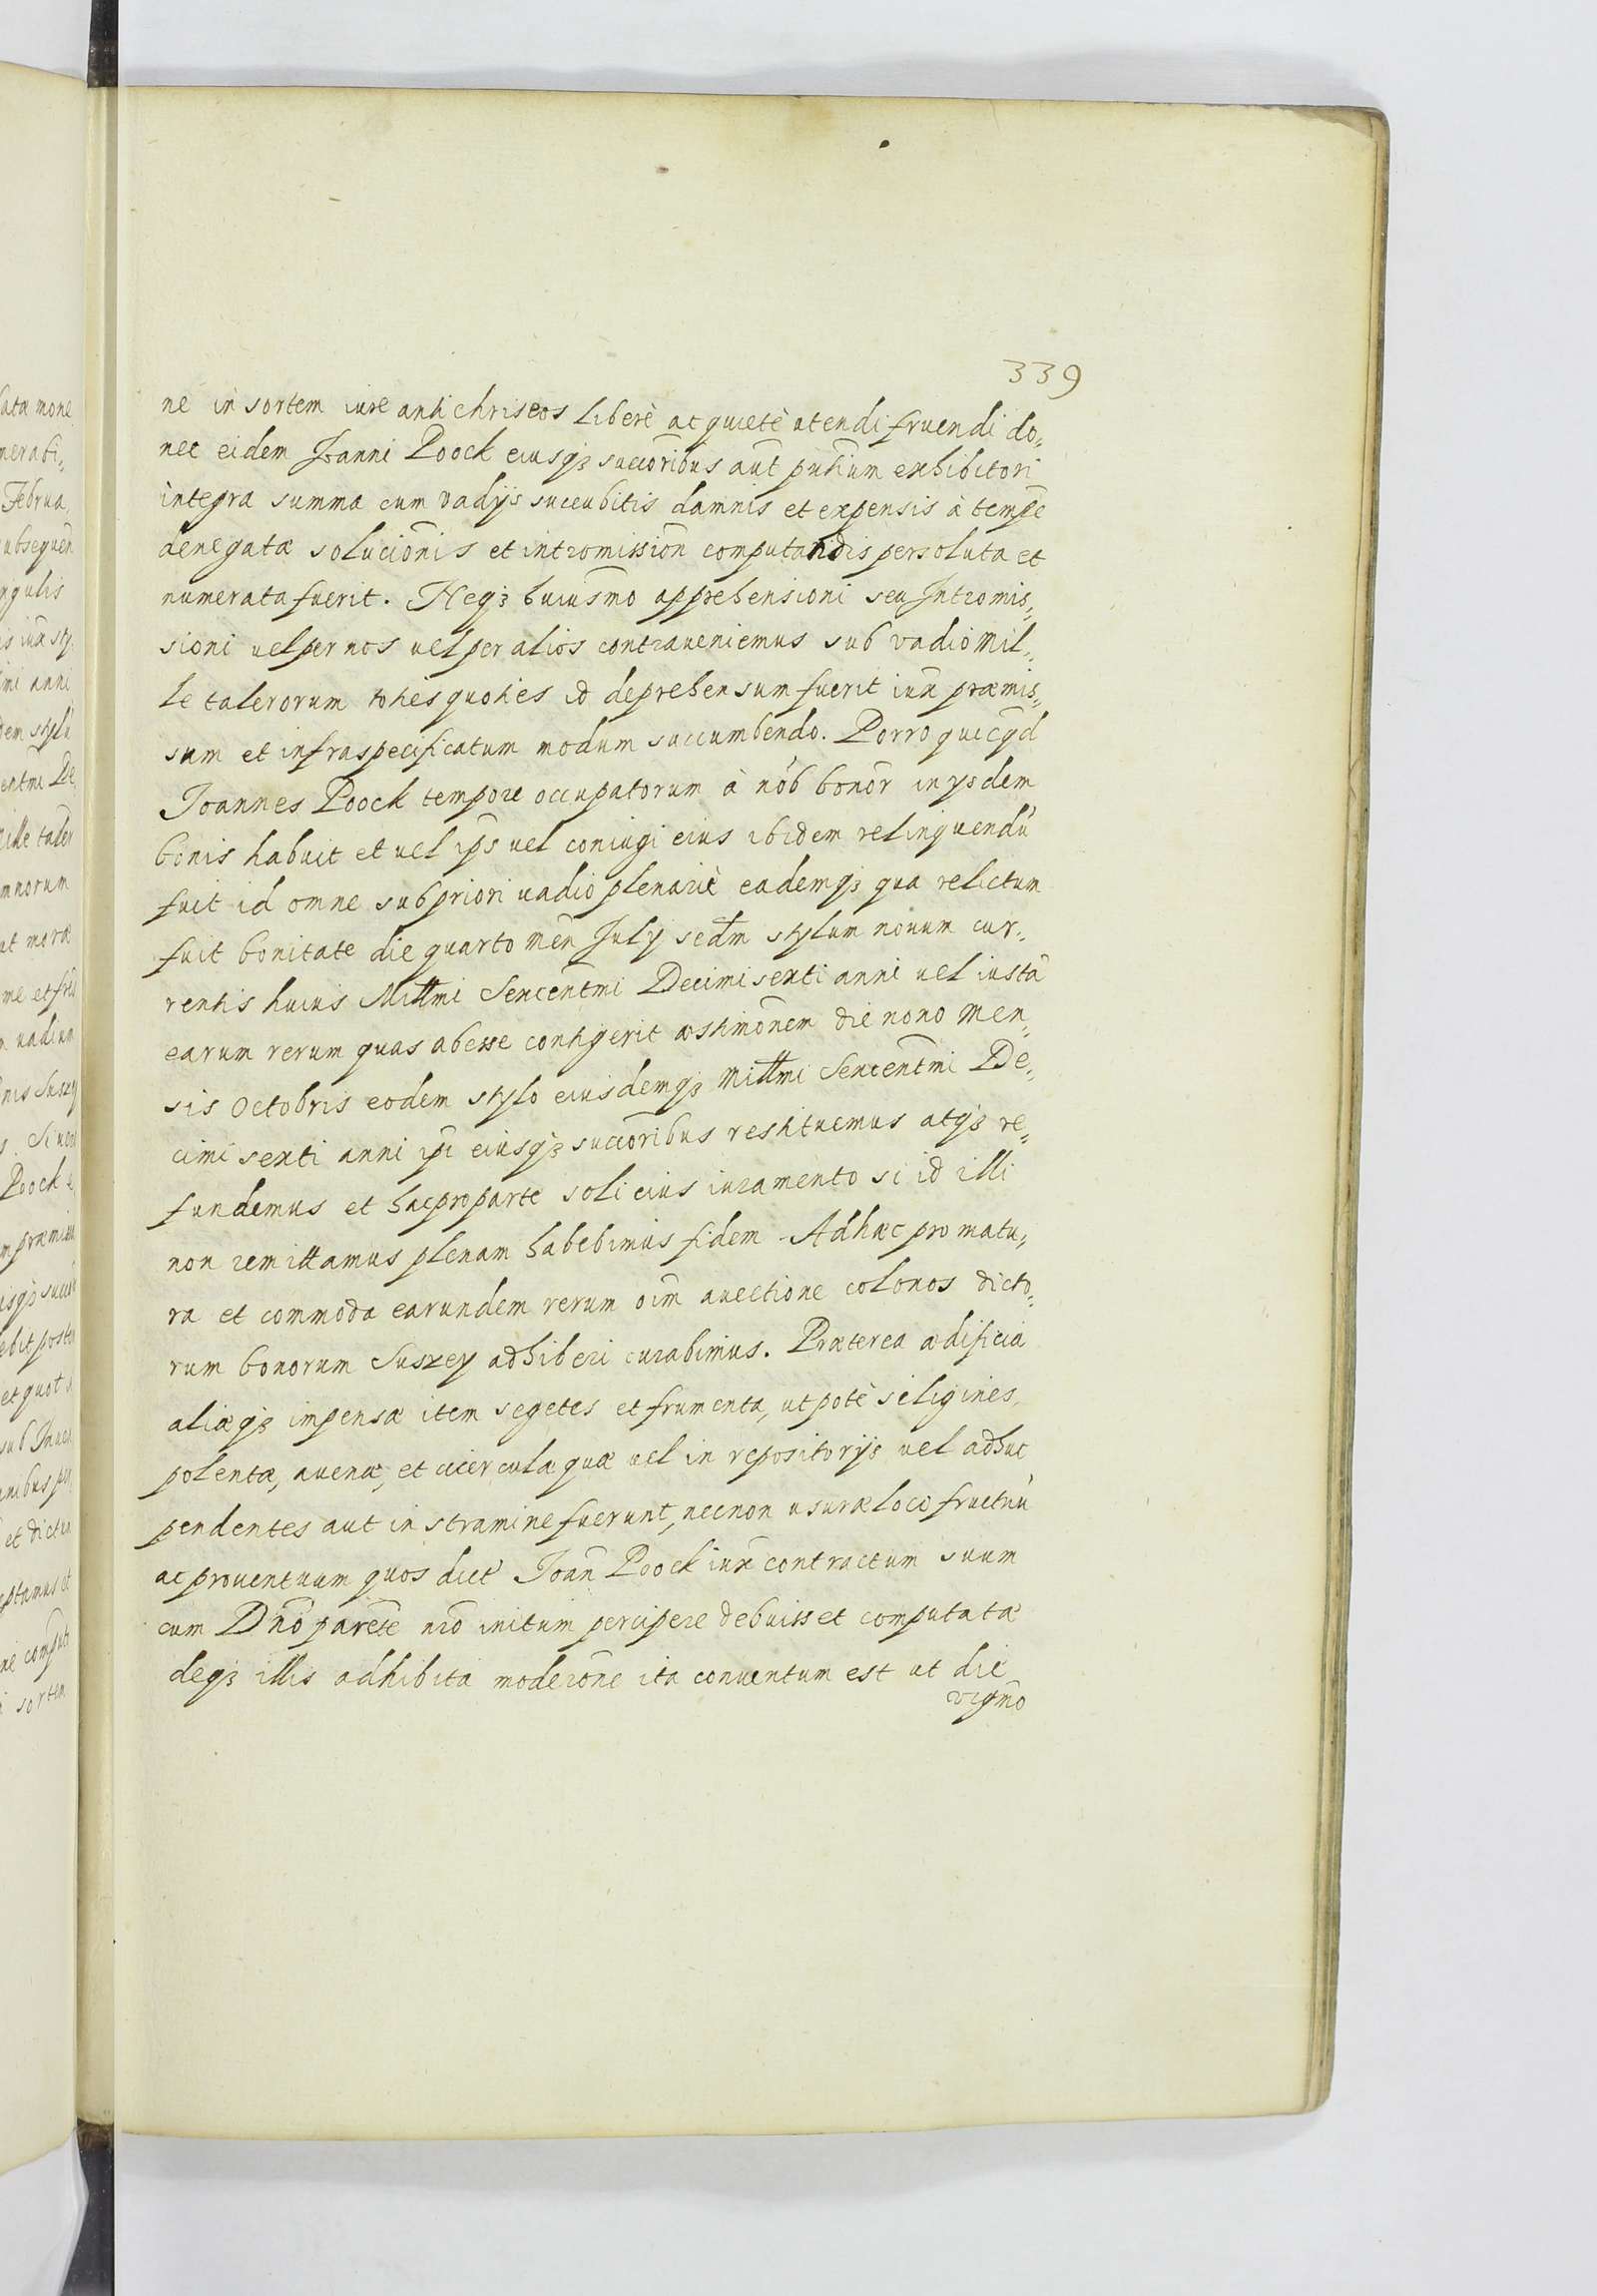 339
ne in sortem iure antichriseos liberè ac quietè utendi fruendi do„
nec eidem Joanni Poock eiusqʒ succōribus aut pntium exhibitori
integra summa cum vadijs succubitis damnis et expensis à tempe
denegatæ solucionis et intromission computandis persoluta et
numerata fuerit. Neqʒ huiusmo apprehensioni seu Intromis„
sioni uel per nos uel per alios contraueniemus sub vadio Mil„
le talerorum toties quoties id deprehensum fuerit iux præmis„
sum et infraspecificatum modum succumbendo. Porro quicqd
Joannes Poock tempore occupatorum à nōb bonōr in ysdem
bonis habuit et uel ips uel coniugi eius ibidem relinquendū
fuit id omne sub priori uadio plenariè eademqʒ qua relictum
fuit bonitate die quarto Mēn July scdm stylum nouum cur„
rentis huius Millmi Sexcentmi Decimi sexti anni uel iustā
earum rerum quas abesse contigerit æstimōnem die nono Men„
sis Octobris eodem stylo eiusdemqʒ Millmi Sexcentmi De„
cimi sexti anni ipi eiusqʒ succōribus restituemus atqʒ re„
fundemus et hac pro parte soli eius iuramento si id illi
non remittamus plenam habebimus fidem. Adhæc pro matu„
ra et commoda earundem rerum oīm auectione colonos dicto„
rum bonorum Suszey adhiberi curabimus. Præterea ædificia
aliæqʒ impensæ item segetes et frumenta, utpotè siligines,
polentæ, auenæ, et cicerculæ quæ uel in repositorijs uel adhuc
pendentes aut in stramine fuerunt, necnon usuræ loco fructuū
ac prouentuum quos dict Joan Poock iux contractum suum
cum Dno parete nro initum percipere debuisset computatæ
deqʒ illis adhibita moderōne ita conuentum est ut die
vigmo